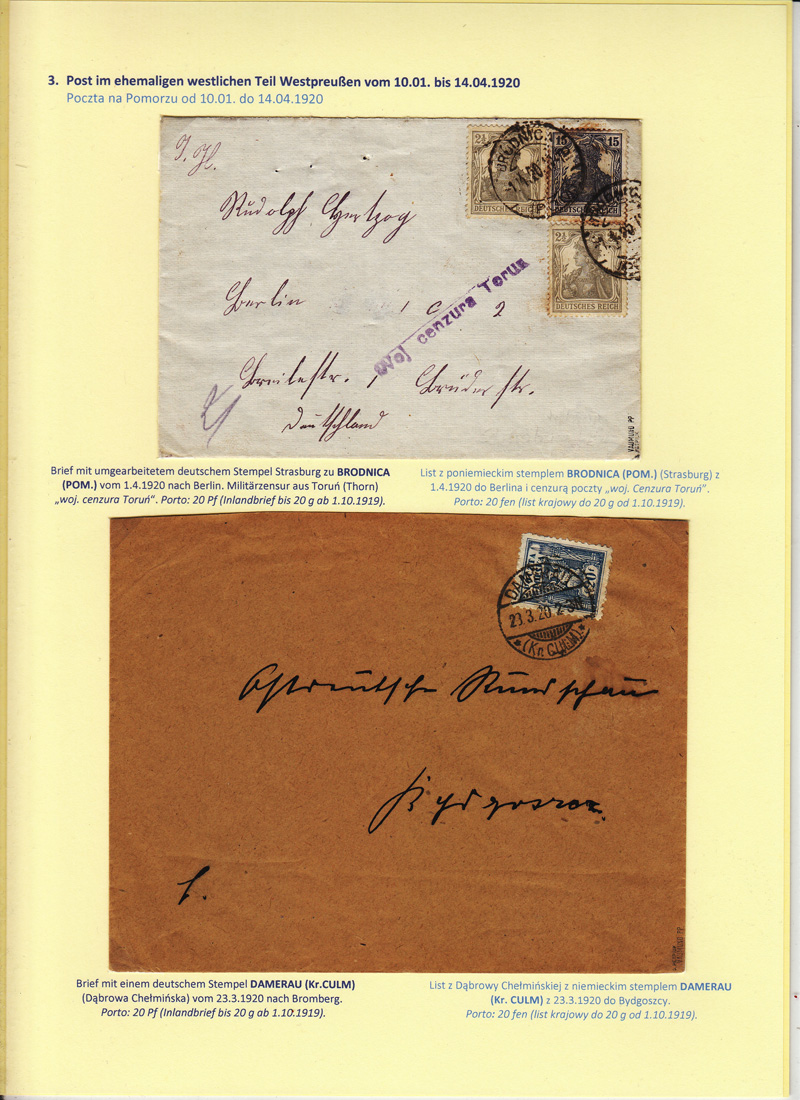 3. Post im ehemaligen westlichen Teil Westpreußen vom 10.01. bis 14.04.1920
Poczta na Pomorzu od 10.01. do 14.04.1920
2½
15
15
DEUTSCHES REICH
DEUTSCHES REICH
2½
DEUTSCHES REICH
Rudolph Hertzog
Berlin C 2
Woj cenzura Torun
Breitestr. Brüderstr.
Deutschland
Brief mit umgearbeitetem deutschem Stempel Strasburg zu BRODNICA
(POM.) vom 1.4.1920 nach Berlin. Militärzensur aus Toruń (Thorn)
„woj. cenzura Toruń“. Porto: 20 Pf (Inlandbrief bis 20 g ab 1.10.1919).
List z poniemieckim stemplem BRODNICA (POM.) (Strasburg) z
1.4.1920 do Berlina i cenzurą poczty „woj. Cenzura Toruń”.
Porto: 20 fen (list krajowy do 20 g od 1.10.1919).
23.3.20
(Kr. CULM)
Ostdeutsche Rundschau
Bydgoszcz
Brief mit einem deutschem Stempel DAMERAU (Kr.CULM)
(Dąbrowa Chełmińska) vom 23.3.1920 nach Bromberg.
Porto: 20 Pf (Inlandbrief bis 20 g ab 1.10.1919).
List z Dąbrowy Chełmińskiej z niemieckim stemplem DAMERAU
(Kr. CULM) z 23.3.1920 do Bydgoszcy.
Porto: 20 fen (list krajowy do 20 g od 1.10.1919).